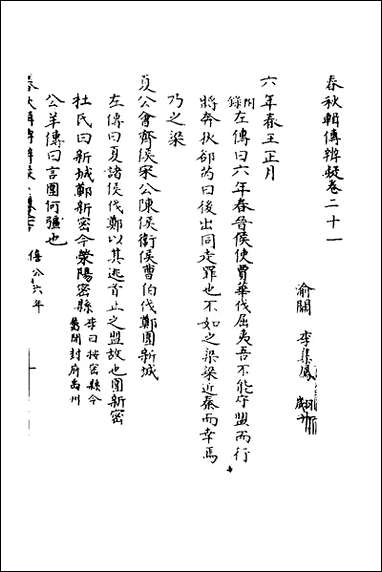 春秋輯傳辨疑卷二十一
渝關 李集鳳 翽升
六年春王正月
附錄左傳曰六年春晉侯使賈華伐屈夷吾不能守盟而行
將奔狄郤芮曰後出同走罪也不如之梁梁近秦而幸焉
乃之梁
夏公會齊侯宋公陳侯衛侯曹伯伐鄭圍新城
左傳曰夏諸侯伐鄭以其逃首止之盟故也圍新密
杜氏曰新城鄭新密今滎陽密縣 李曰按密縣今
屬開封府禹州
公羊傳曰言圍何彊也
春秋輯傳辨疑 僖公六年